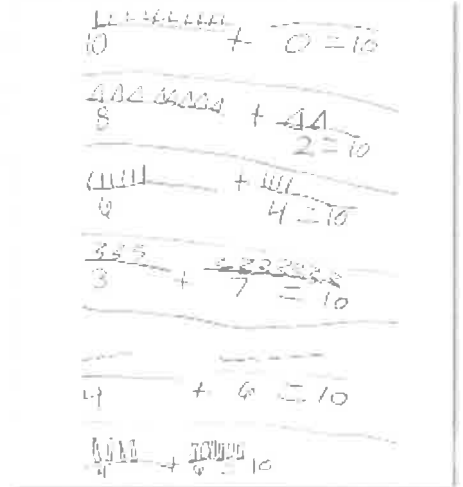 10 + 0 = 10
8 + 2 = 10
6 + 4 = 10
3 3 3
3 + 7 = 10
4 + 6 = 10
4 + 6 = 10